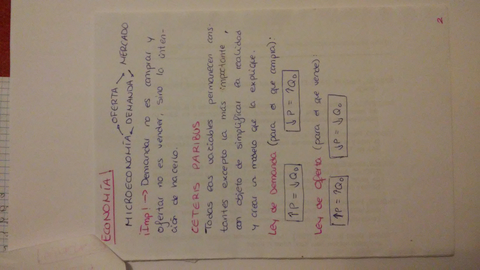 ECONOMÍA!
MICROECONOMÍA OFERTA DEMANDA MERCADO
¡Imp! → Demandar no es comprar y
ofertar no es vender, sino la inten-
ción de hacerlo.
CETERIS PARIBUS
Todas las variables permanecen cons-
tantes excepto la más importante,
con objeto de simplificar la realidad
y crear un modelo que la explique.
Ley de Demanda (para el que compra):
↑P = ↓Q₀ ↓P = ↑Q₀
Ley de Oferta (para el que vende)
↑P = ↑Q₀ ↓P = ↓Q₀
2